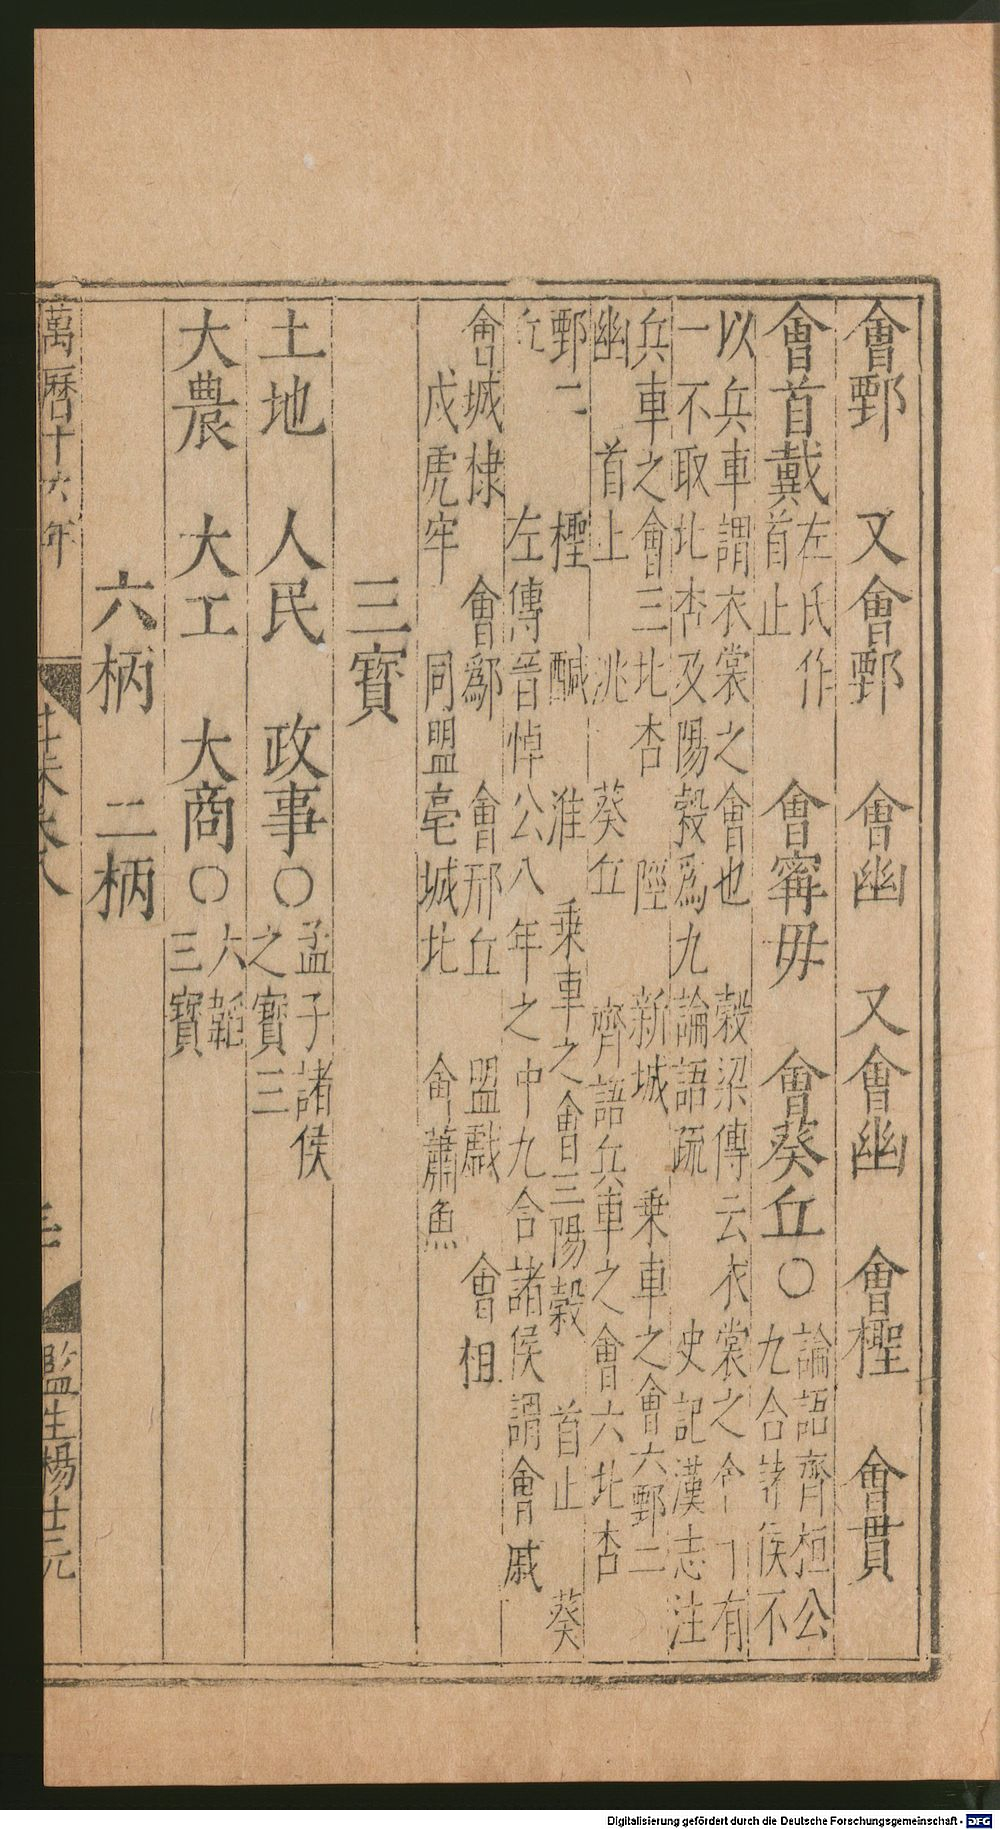 會鄄　又會鄄　會幽　又會幽　會檉　會貫
會首戴　左氏作
首止　會甯毋　會葵丘〇　論語齊桓公
九合諸侯不
以兵車謂衣裳之會也　榖梁傳云衣裳之會十有
一不取北杏及陽榖爲九論語疏　史記漢志注
兵車之會三北杏　陘　新城　乗車之會六鄄二
幽　首止　洮　葵丘　齊語兵車之會六北杏
鄄二　檉　醎　淮　乗車之會三陽榖　首止　葵
丘　左傳晉悼公八年之中九合諸侯謂會戚
會城棣　會鄬　會邢丘　盟戲　會柤
戍虎牢　同盟亳城北　會蕭魚
三寳
土地　人民　政事〇　孟子諸侯
之寳三
大農　大工　大商〇　六韜
三寳
六柄　二柄
萬曆十六年　卷八　監生楊仕元
Digitalisierung gefördert durch die Deutsche Forschungsgemeinschaft - DFG